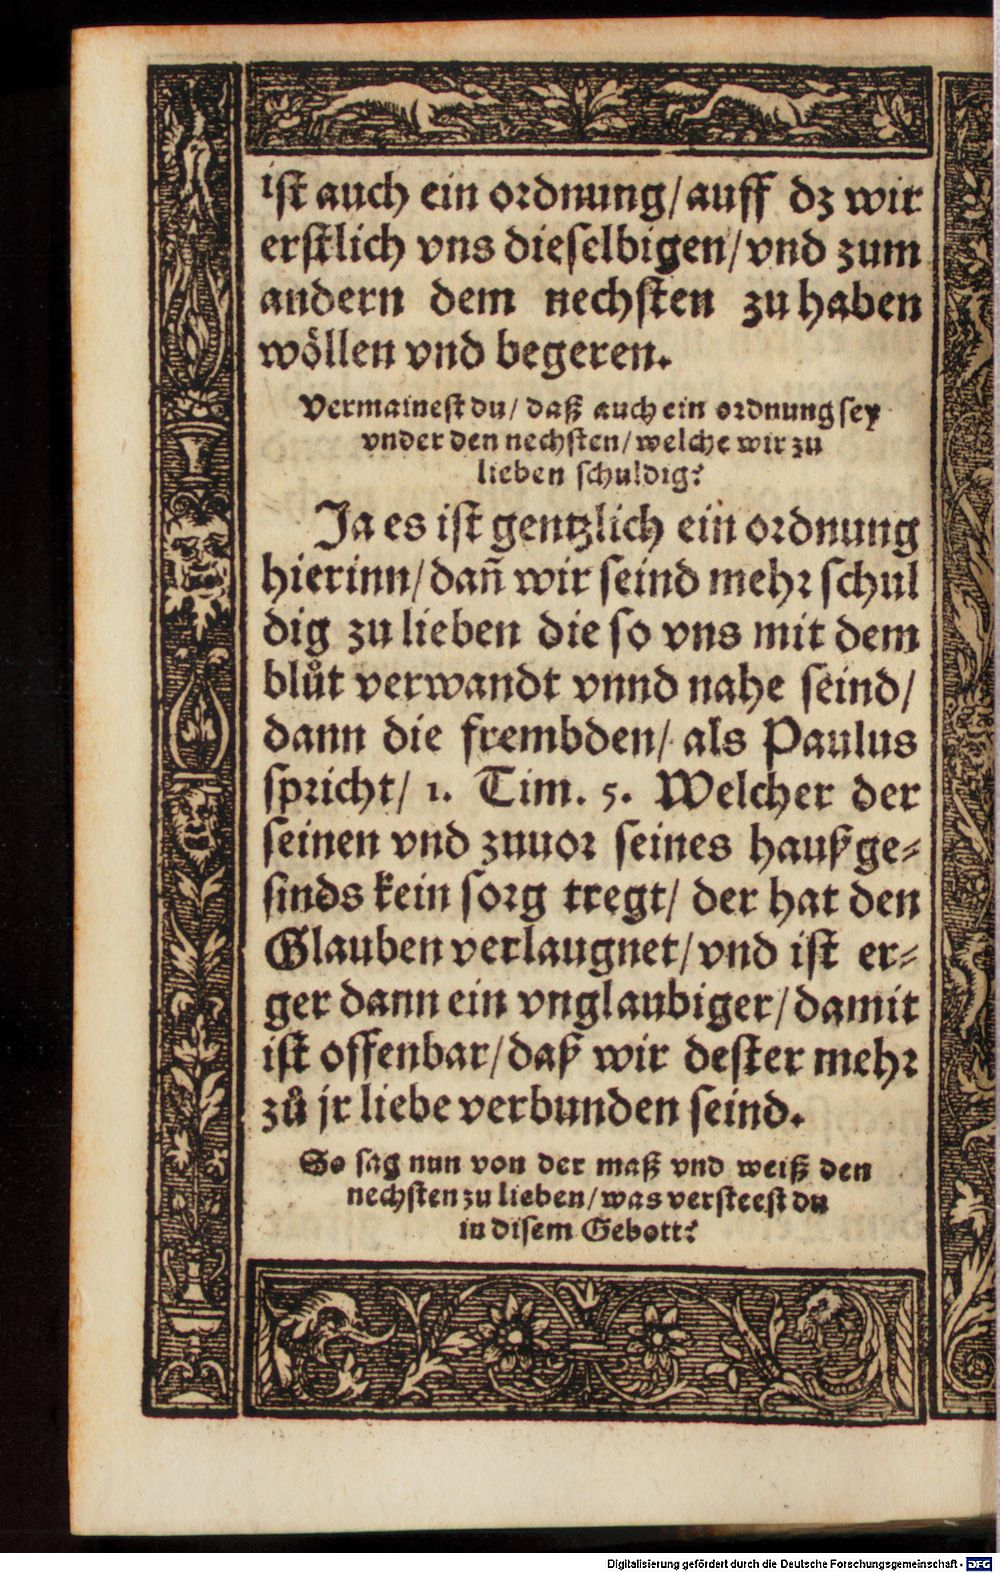 ist auch ein ordnung/auff dz wir
erstlich vns dieselbigen/vnd zum
andern dem nechsten zu haben
wöllen vnd begeren.
Vermainest du/ daß auch ein ordnung sey
vnder den nechsten/welche wir zu
lieben schuldig?
Ja es ist gentzlich ein ordnung
hierinn/dañ wir seind mehr schul
dig zu lieben die so vns mit dem
blůt verwandt vnnd nahe seind/
dann die frembden/ als Paulus
spricht/ 1. Tim. 5. Welcher der
seinen vnd zuuor seines haußge-
sinds kein sorg tregt/ der hat den
Glauben verlaugnet/vnd ist er-
ger dann ein vnglaubiger/damit
ist offenbar/daß wir dester mehr
zů jr liebe verbunden seind.
So sag nun von der maß vnd weiß den
nechsten zu lieben/was versteest du
in disem Gebott?
Digitalisierung gefördert durch die Deutsche Forschungsgemeinschaft - DFG